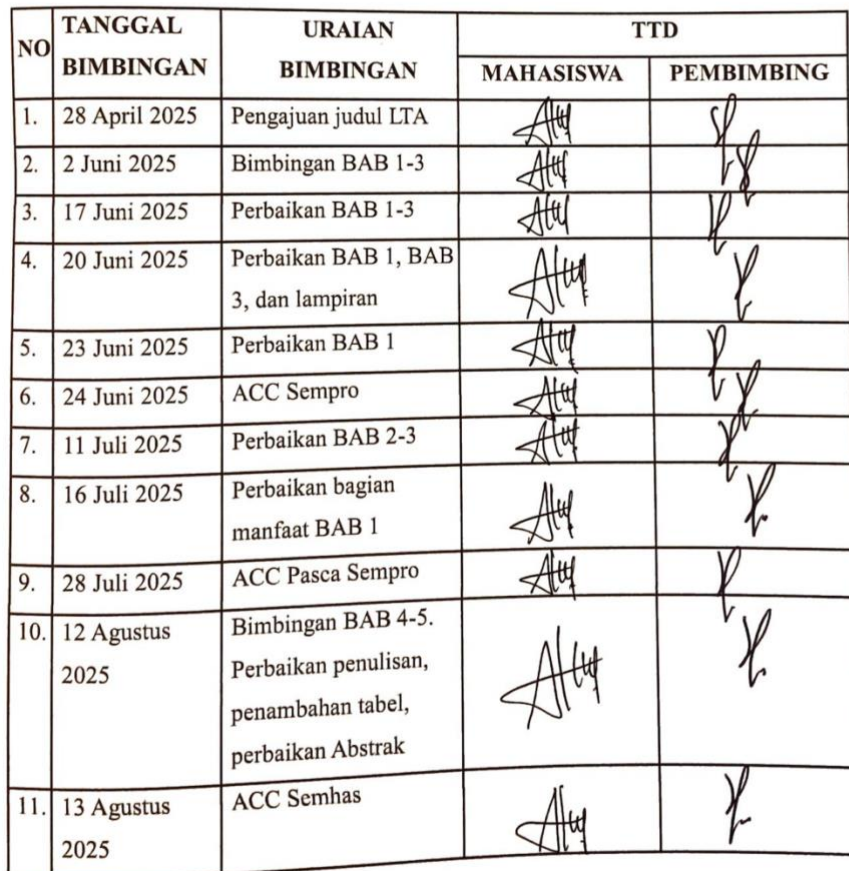 NO TANGGAL BIMBINGAN URAIAN BIMBINGAN TTD
MAHASISWA PEMBIMBING
1. 28 April 2025 Pengajuan judul LTA
2. 2 Juni 2025 Bimbingan BAB 1-3
3. 17 Juni 2025 Perbaikan BAB 1-3
4. 20 Juni 2025 Perbaikan BAB 1, BAB
3, dan lampiran
5. 23 Juni 2025 Perbaikan BAB 1
6. 24 Juni 2025 ACC Sempro
7. 11 Juli 2025 Perbaikan BAB 2-3
8. 16 Juli 2025 Perbaikan bagian
manfaat BAB 1
9. 28 Juli 2025 ACC Pasca Sempro
10. 12 Agustus Bimbingan BAB 4-5.
2025 Perbaikan penulisan,
penambahan tabel,
perbaikan Abstrak
11. 13 Agustus ACC Semhas
2025